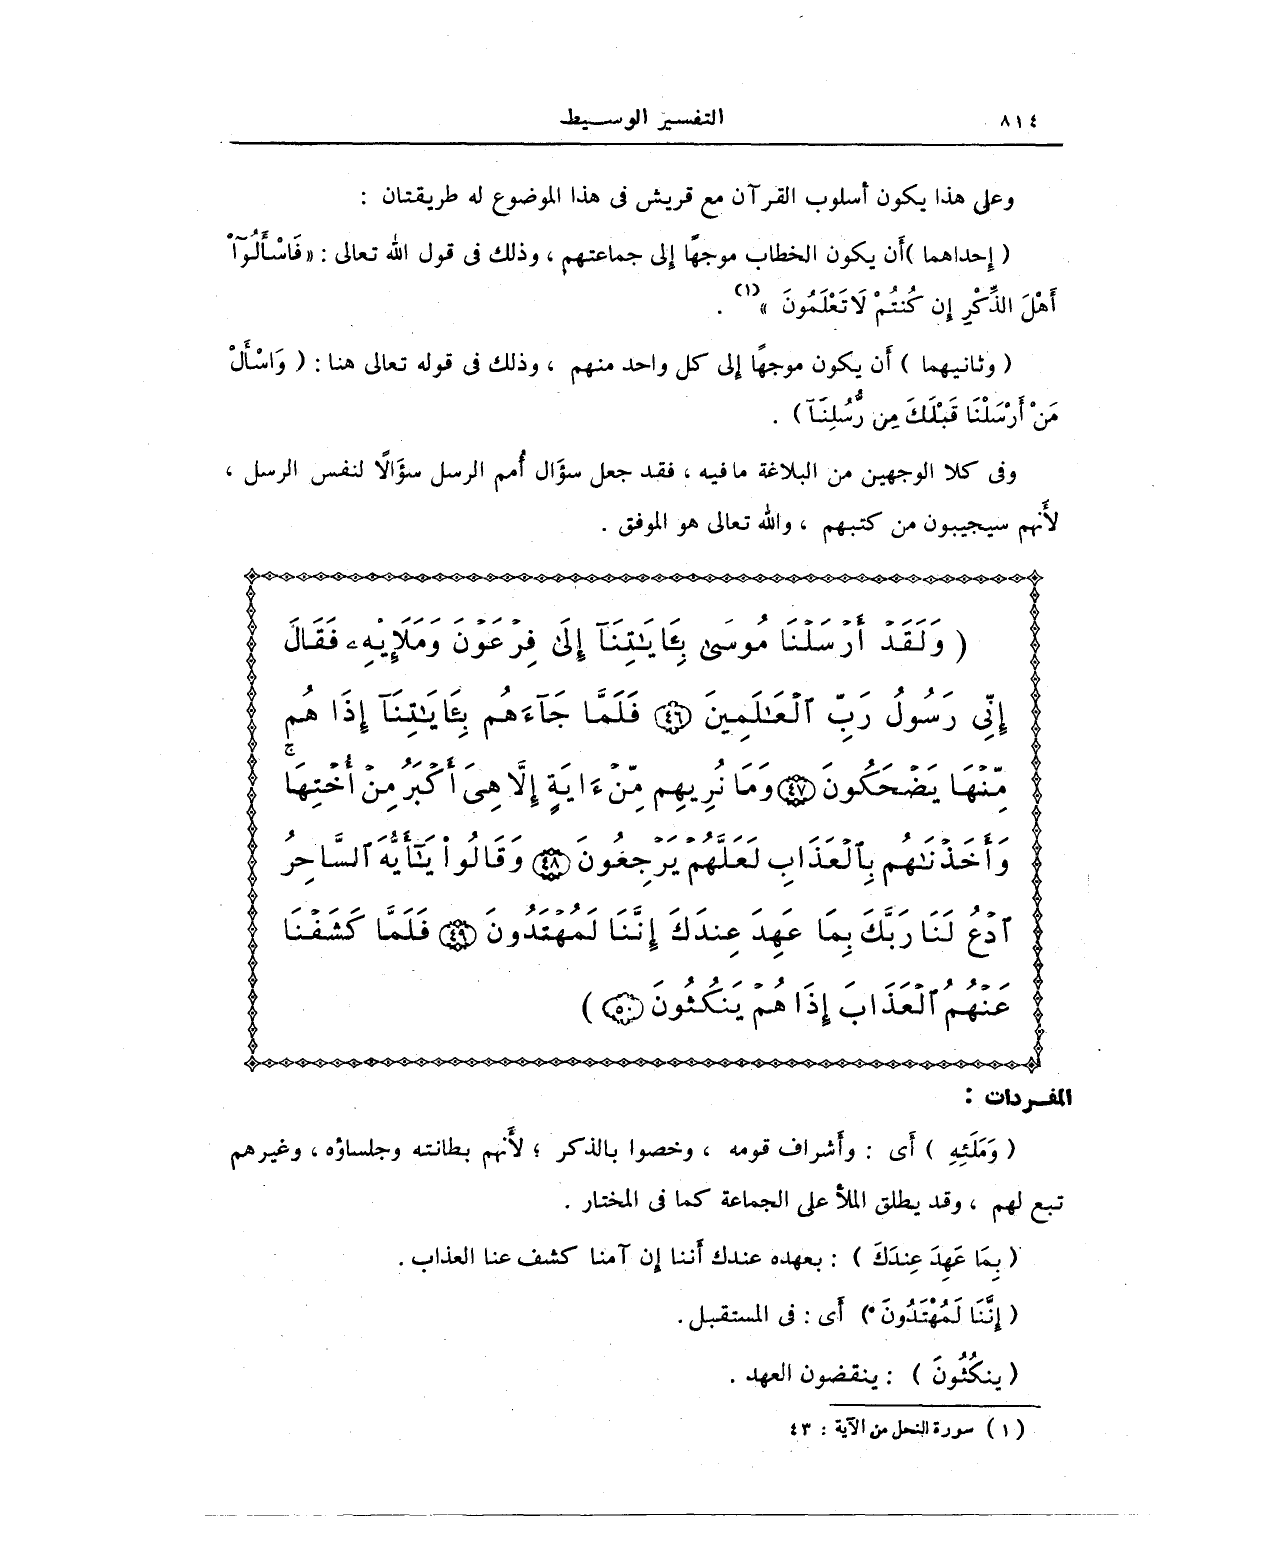 ٨١٤ التفسير الوسيط
وعلى هذا يكون أسلوب القرآن مع قريش فى هذا الموضوع له طريقتان :
( إحداهما )أن يكون الخطاب موجهًا إلى جماعتهم ، وذلك فى قول الله تعالى : « فَاسْأَلُوٓاْ
أَهْلَ الذِّكْرِ إِن كُنتُمْ لَا تَعْلَمُونَ » (١) .
( وثانيهما ) أن يكون موجهًا إلى كل واحد منهم ، وذلك فى قوله تعالى هنا : ( وَاسْأَلْ
مَنْ أَرْسَلْنَا قَبْلَكَ مِن رُّسُلِنَآ ) .
وفى كلا الوجهين من البلاغة ما فيه ، فقد جعل سؤال أُمم الرسل سؤالًا لنفس الرسل ،
لأَنهم سيجيبون من كتبهم ، والله تعالى هو الموفق .
( وَلَقَدْ أَرْسَلْنَا مُوسَىٰ بِـَٔايَـٰتِنَآ إِلَىٰ فِرْعَوْنَ وَمَلَإِيْهِۦ فَقَالَ
إِنِّى رَسُولُ رَبِّ ٱلْعَـٰلَمِينَ ٤٦ فَلَمَّا جَآءَهُم بِـَٔايَـٰتِنَآ إِذَا هُم
مِّنْهَا يَضْحَكُونَ ٤٧ وَمَا نُرِيهِم مِّنْ ءَايَةٍ إِلَّا هِىَ أَكْبَرُ مِنْ أُخْتِهَا ۚ
وَأَخَذْنَـٰهُم بِٱلْعَذَابِ لَعَلَّهُمْ يَرْجِعُونَ ٤٨ وَقَالُواْ يَـٰٓأَيُّهَ ٱلسَّاحِرُ
ٱدْعُ لَنَا رَبَّكَ بِمَا عَهِدَ عِندَكَ إِنَّنَا لَمُهْتَدُونَ ٤٩ فَلَمَّا كَشَفْنَا
عَنْهُمُ ٱلْعَذَابَ إِذَا هُمْ يَنكُثُونَ ٥٠ )
المفردات :
( وَمَلَئِهِ ) أَى : وأَشراف قومه ، وخصوا بالذكر ؛ لأَنهم بطانته وجلساؤه ، وغيرهم
تبع لهم ، وقد يطلق الملأ على الجماعة كما فى المختار .
( بِمَا عَهِدَ عِندَكَ ) : بعهده عندك أَننا إن آمنا كشف عنا العذاب .
( إِنَّنَا لَمُهْتَدُونَ ) أَى : فى المستقبل .
( ينكُثُونَ ) : ينقضون العهد .
( ١ ) سورة النحل من الآية : ٤٣